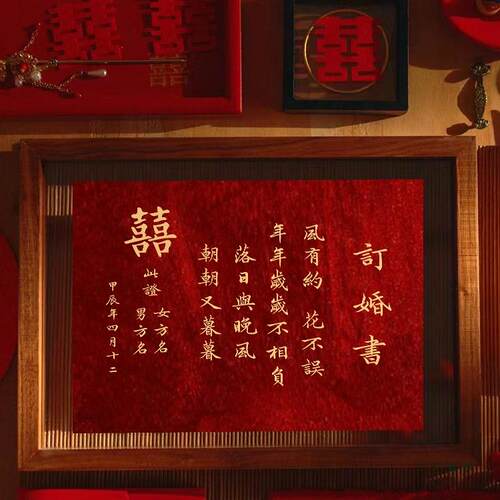 訂婚書
風有約 花不誤
年年歲歲不相負
落日與晚風
朝朝又暮暮
囍
此證 女方名
男方名
甲辰年四月十二
囍
囍
囍